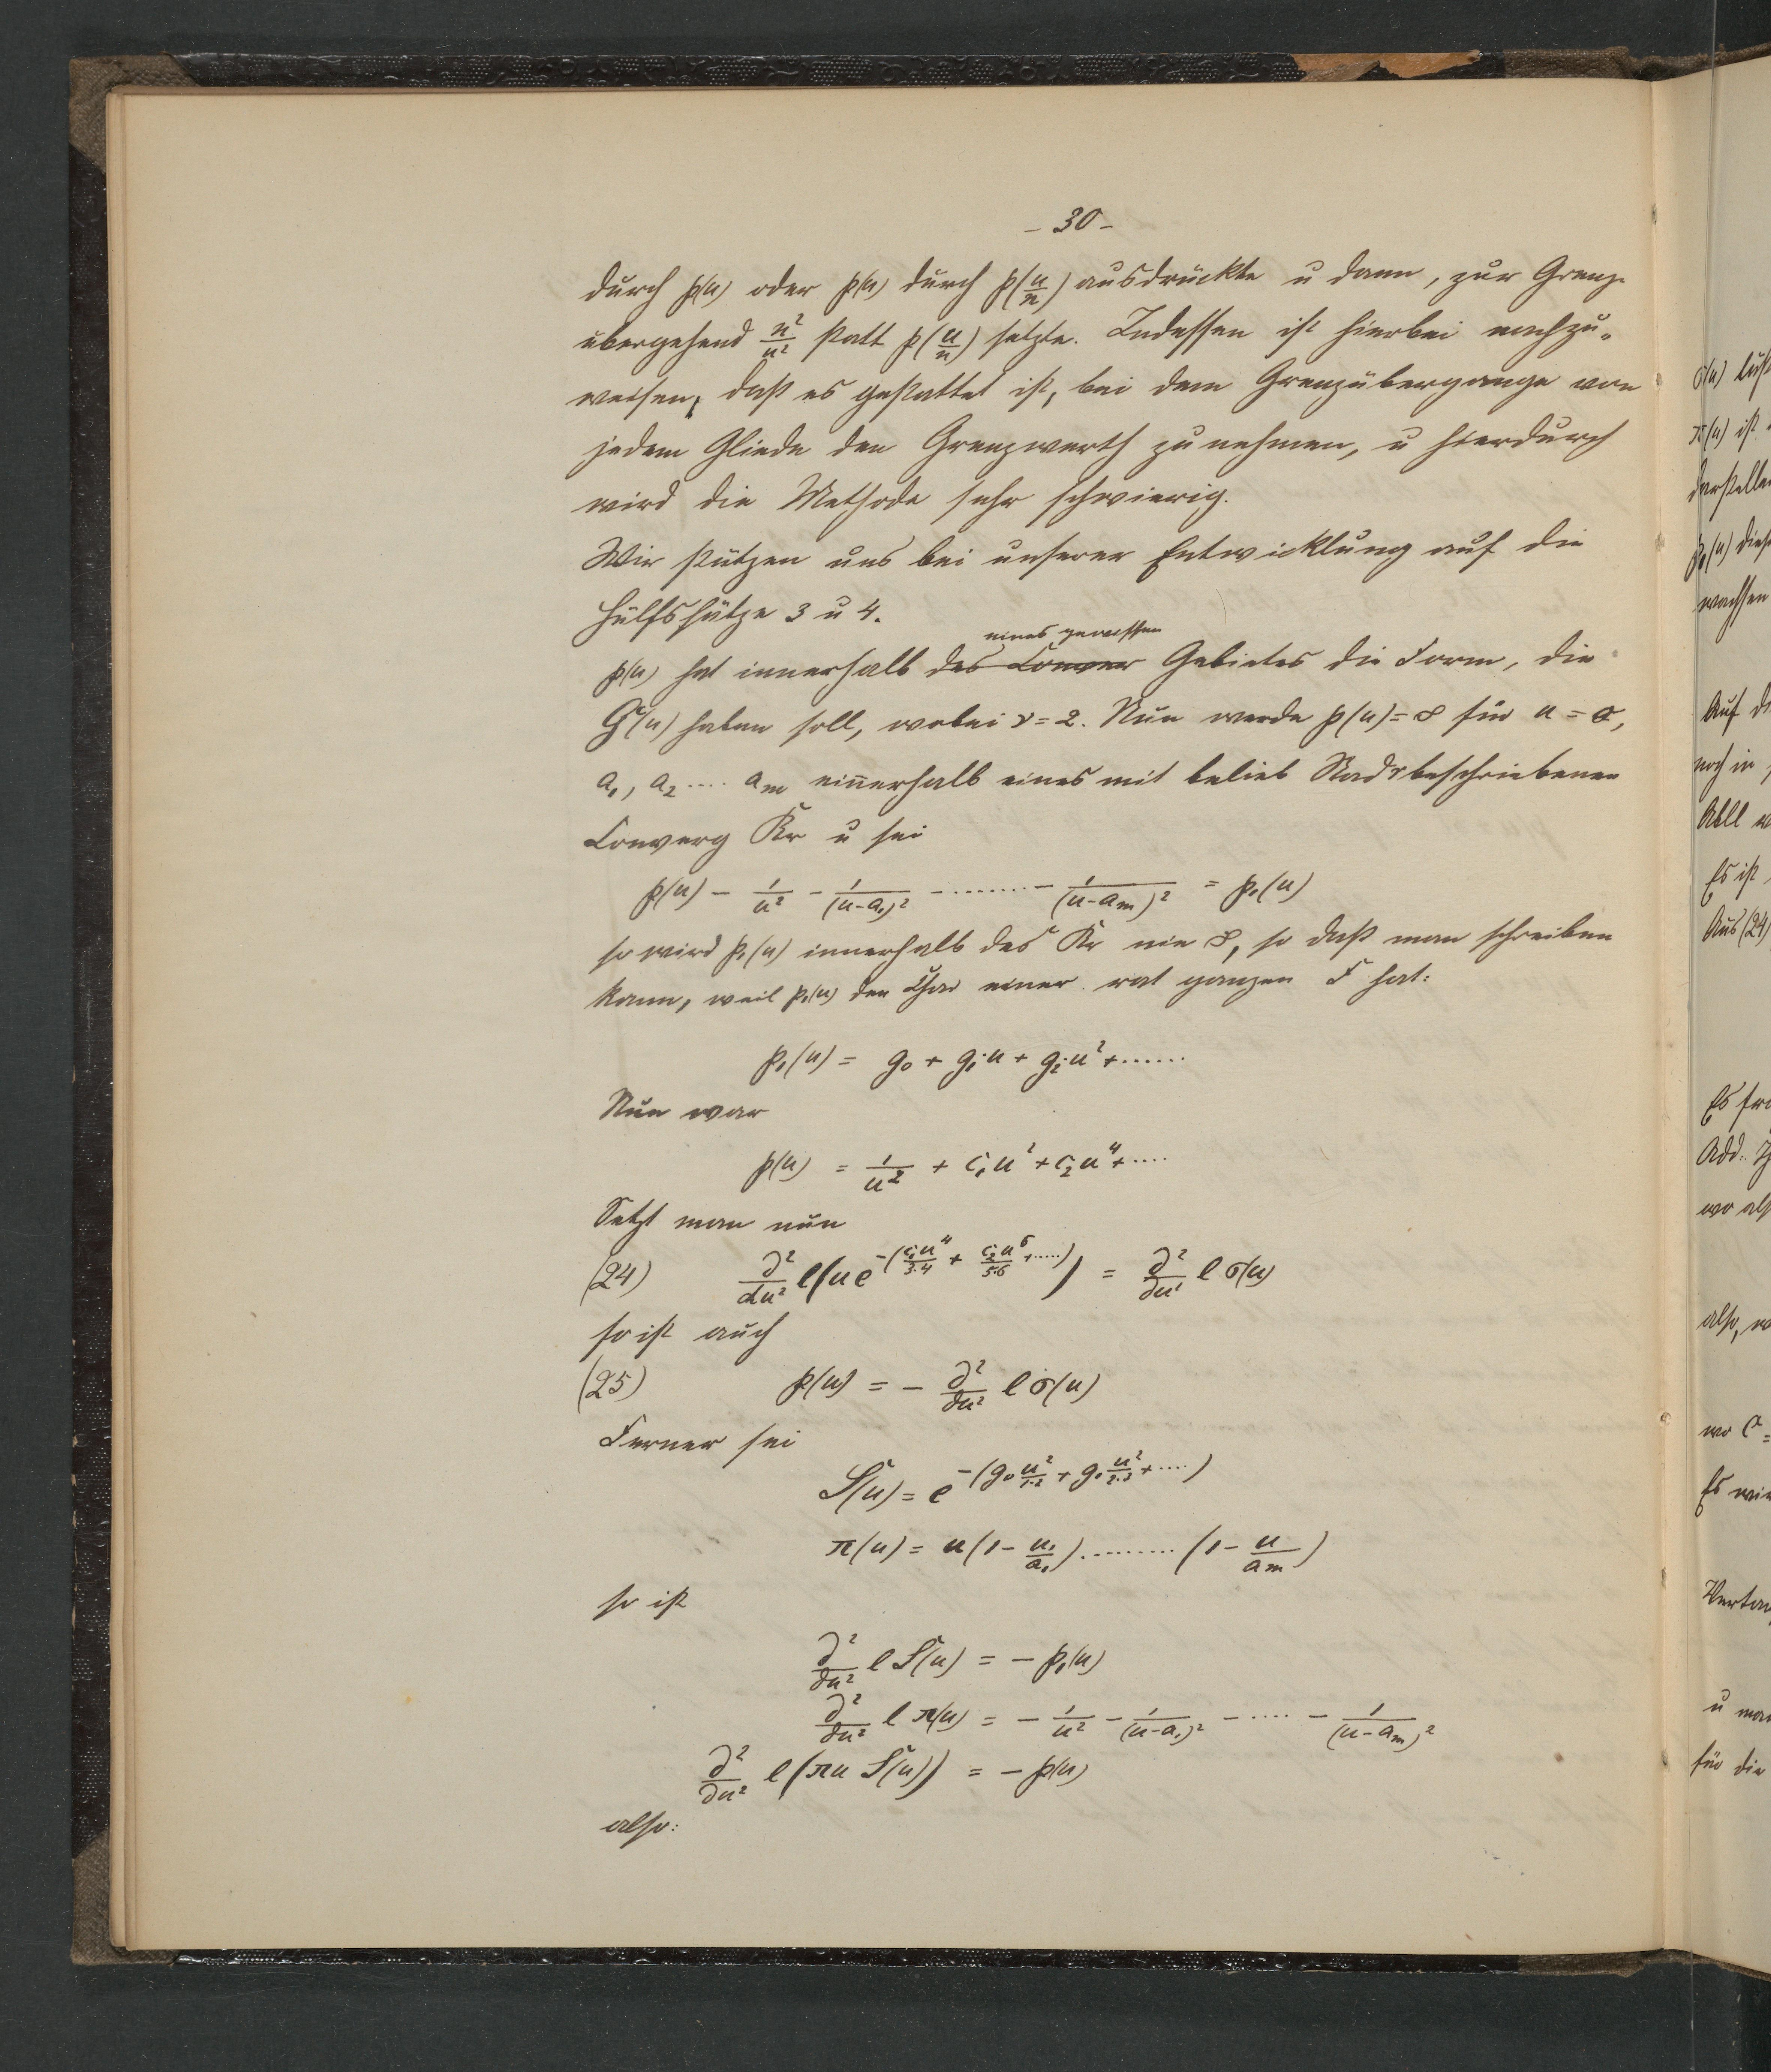 - 30 -
durch ℘(u) oder ℘(u) durch ℘(u/n) ausdrückte u dann, zur Grenze
übergehend n²/u² statt ℘(u/n) setzte. Indessen ist hierbei nachzu-
weisen, daß es gestattet ist, bei dem Grenzübergange von
jedem Gliede den Grenzwerth zu nehmen, u hierdurch
wird die Methode sehr schwierig.
Wir stützen uns bei unserer Entwicklung auf die
Hülfssätze 3 u 4.
eines gewissen
℘(u) hat innerhalb des Conver Gebietes die Form, die
G(u) haben soll, wobei ν = 2. Nun werde ℘(u) = ∞ für u = o,
a₁, a₂ .... aₘ innerhalb eines mit belieb Rad r beschriebenen
Converg Kr u sei
℘(u) - 1/u² - 1/(u-a₁)² - ........ - 1/(u-aₘ)² = ℘₁(u)
so wird ℘₁(u) innerhalb des Kr nie ∞, so daß man schreiben
kann, weil ℘₁(u) den Char einer rat ganzen F hat:
℘₁(u) = g₀ + g₁u + g₂u² + ......
Nun war
℘(u) = 1/u² + c₁u² + c₂u⁴ + ....
Setzt man nun
(24) ∂²/du² l(u e^{-(c₁u⁴/3·4 + c₂u⁶/5·6 + .....)}) = ∂²/∂u² l σ(u)
so ist auch
(25) ℘(u) = - ∂²/∂u² l σ(u)
Ferner sei
S(u) = e^{-(g₀ u²/1·2 + g₁ u²/2·3 + ....)}
π(u) = u(1 - u₁/a₁) ......... (1 - u/aₘ)
so ist
∂²/∂u² l S(u) = - ℘₁(u)
∂²/∂u² l π(u) = - 1/u² - 1/(u-a₁)² - .... - 1/(u-aₘ)²
∂²/∂u² l (πu S(u)) = - ℘(u)
also: